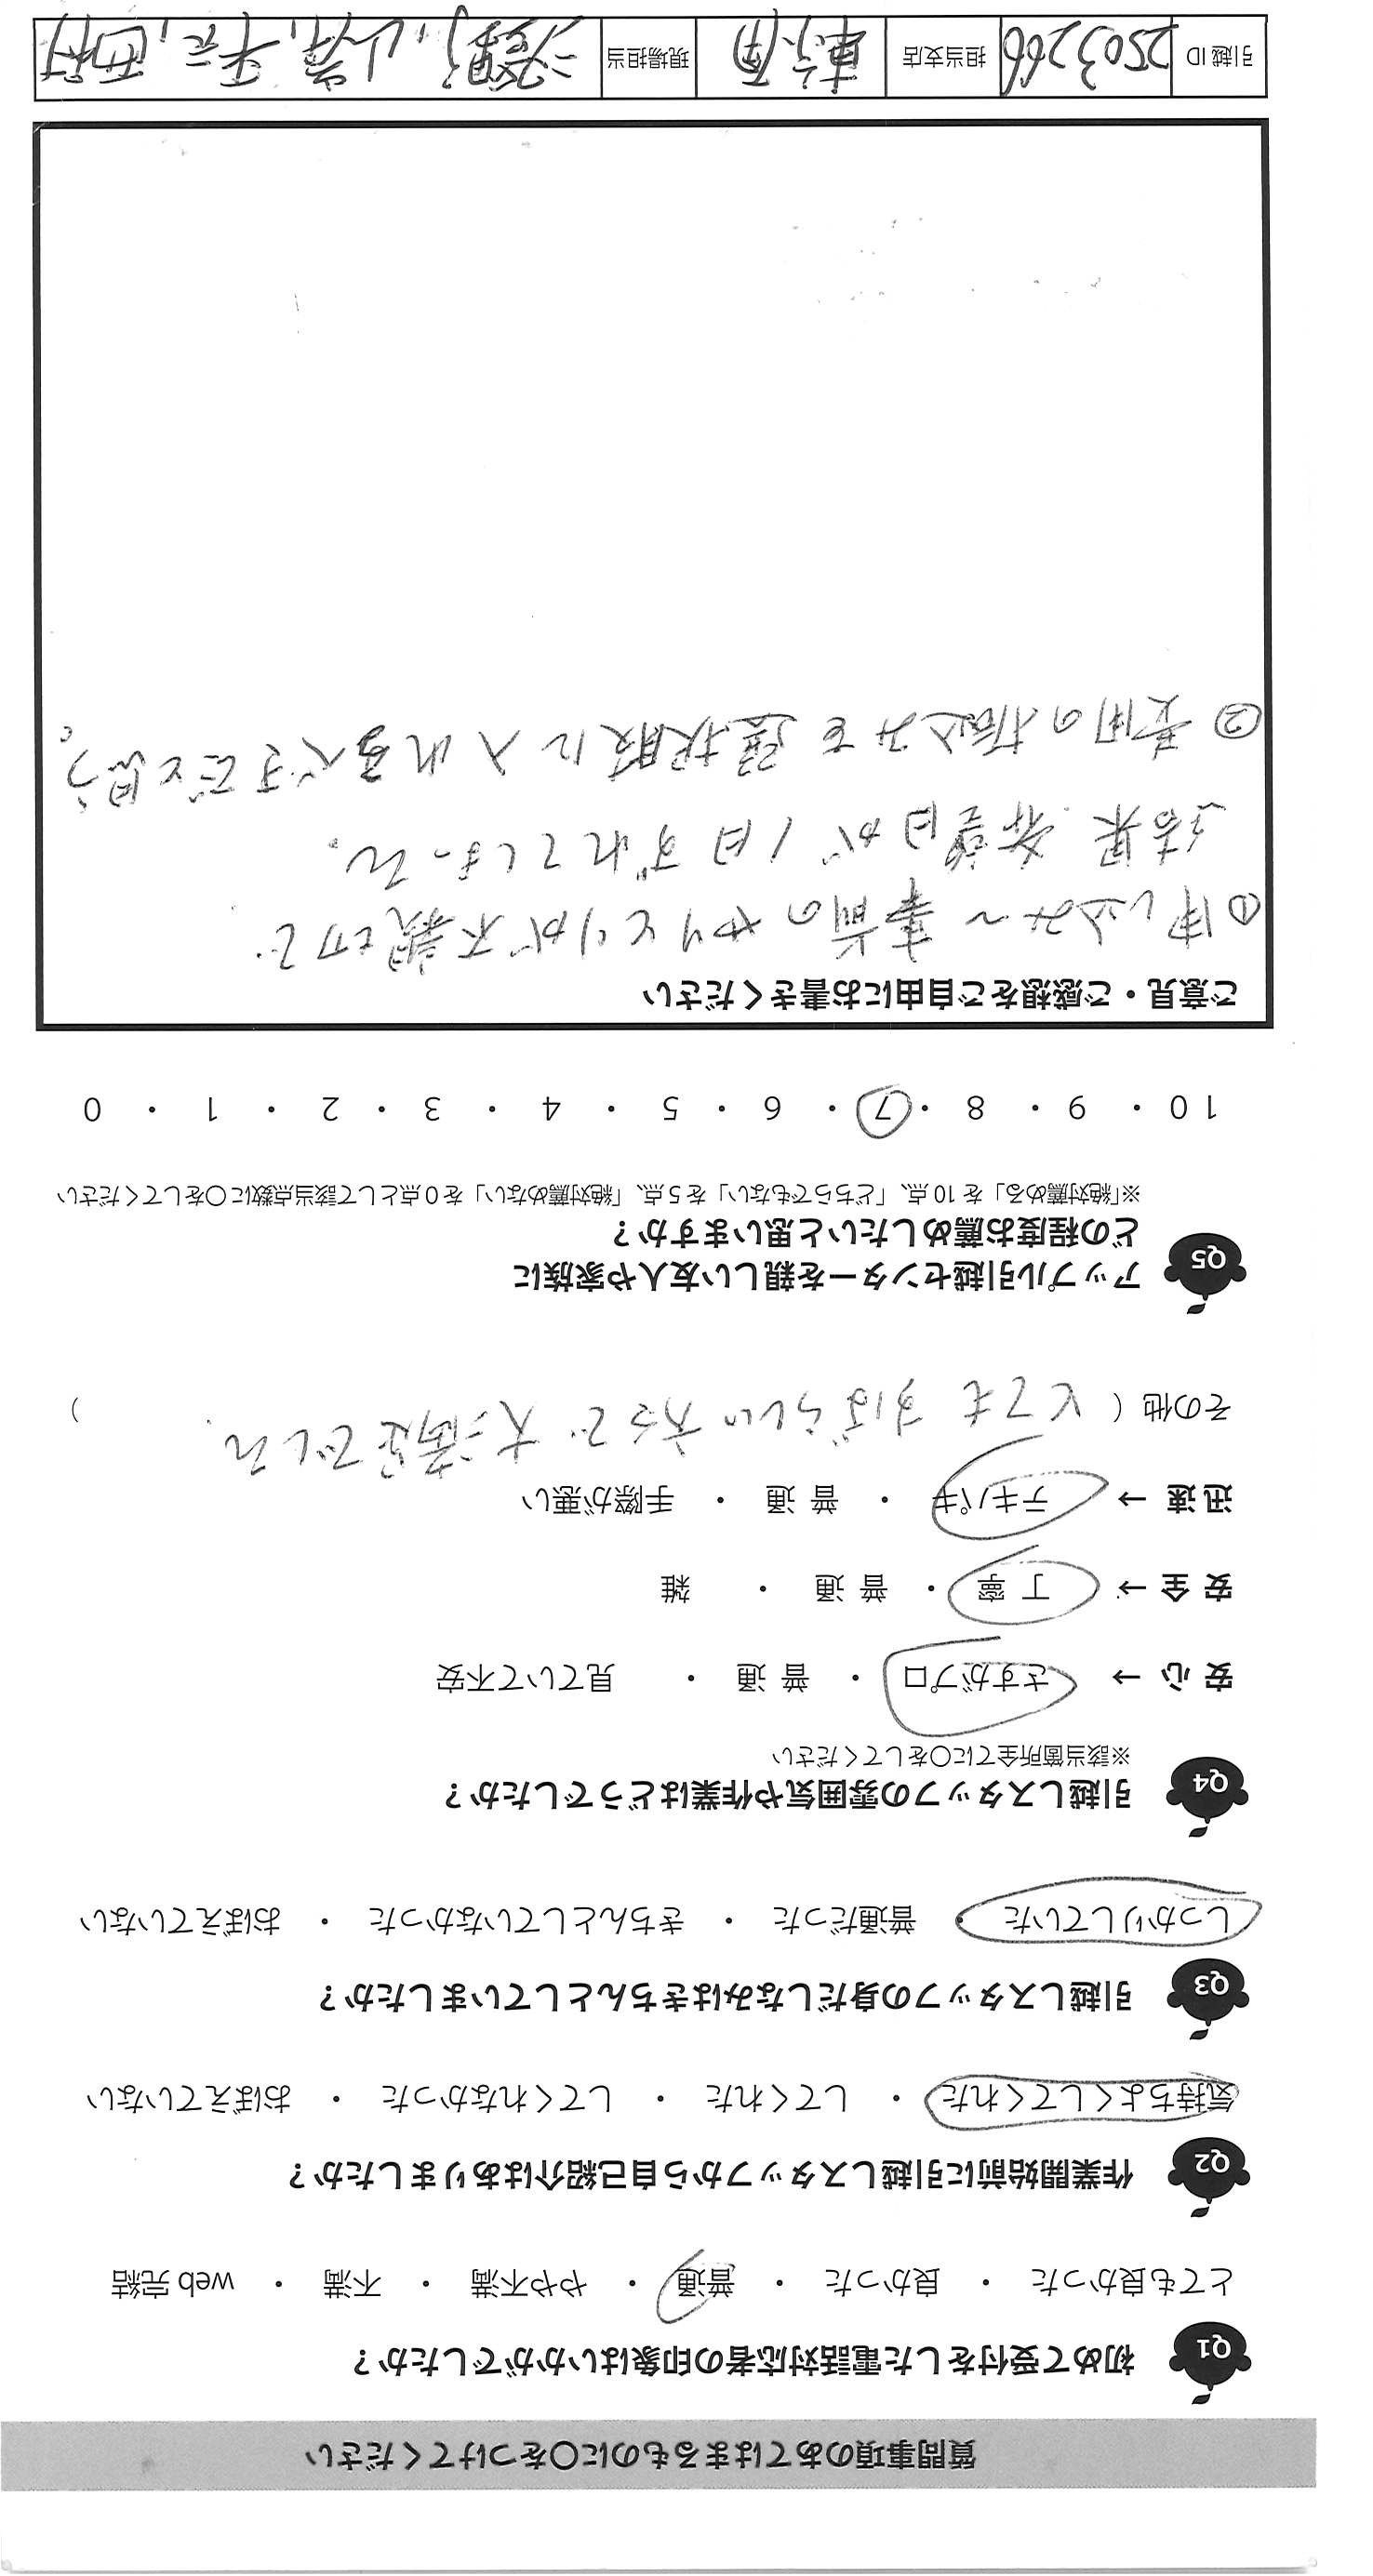 質問事項のあてはまるものに〇をつけてください
Q1 初めて受付をした電話対応者の印象はいかがでしたか？
とても良かった ・ 良かった ・ 普通 ・ やや不満 ・ 不満 ・ web 完結
Q2 作業開始前に引越しスタッフから自己紹介はありましたか？
気持ちよくしてくれた ・ してくれた ・ してくれなかった ・ おぼえていない
Q3 引越しスタッフの身だしなみはきちんとしていましたか？
しっかりしていた ・ 普通だった ・ きちんとしていなかった ・ おぼえていない
Q4 引越しスタッフの雰囲気や作業はどうでしたか？
※該当箇所全てに〇をしてください
安 心 → さすがプロ ・ 普 通 ・ 見ていて不安
安 全 → 丁 寧 ・ 普 通 ・ 雑
迅 速 → テキパキ ・ 普 通 ・ 手際が悪い
その他 ( とても すばらしい 方々で 大満足でした )
Q5 アップル引越センターを親しい友人や家族に
どの程度お薦めしたいと思いますか？
※「絶対薦める」を 10 点、「どちらでもない」を 5 点、「絶対薦めない」を 0 点として該当点数に〇をしてください
10 ・ 9 ・ 8 ・ 7 ・ 6 ・ 5 ・ 4 ・ 3 ・ 2 ・ 1 ・ 0
ご意見・ご感想をご自由にお書きください
①申し込み〜事前のやりとりが不親切で
結果 希望日が 1日ずれてしまった。
②費用の振込みを選択肢に入れるべきだと思う。
引越 ID 2503266 担当支店 現場担当